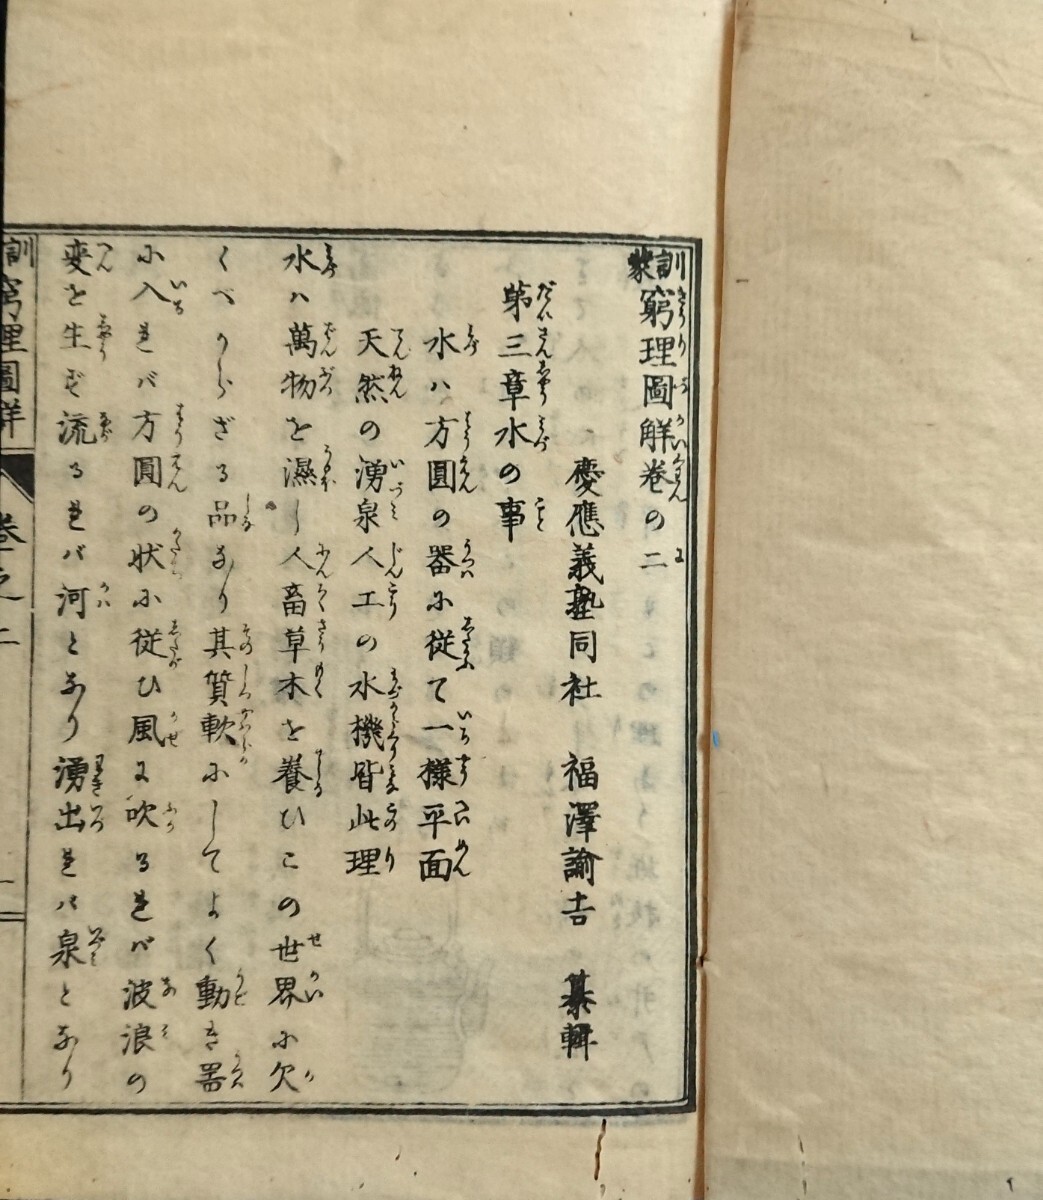 訓蒙窮理圖解巻の二
慶應義塾同社 福澤諭吉 纂輯
第三章水の事
水ハ方圓の器に従て一様平面
天然の湧泉人工の水機皆此理
水ハ萬物を濕し人畜草木を養ひこの世界に欠
くべからざる品なり其質軟にしてよく動き器
に入れバ方圓の状に従ひ風に吹るれバ波浪の
変を生ず流るれバ河となり湧出れバ泉となり
訓 窮理圖解 巻之二 一